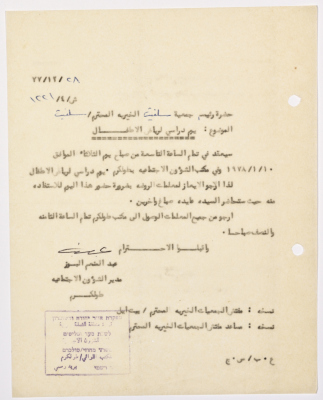 ٧٧/١٢/٢٨
ش/٤/١٢٢١
حضرة رئيس جمعية سلفيت الخيرية المحترم/ سلفيت
الموضوع : يوم دراسي لرياض الاطفال
سيعقد في تمام الساعة التاسعة من صباح يوم الثلاثاء الموافق
١٩٧٨/١/١٠ وفي مكتب الشؤون الاجتماعيه بطولكرم يوم دراسي لرياض الاطفال
لذا ارجو الايعاز لمعلمات الروضه بضرورة حضور هذا اليوم للاستفاده
منه حيث ستحاضر السيده فايده صباغ واخرين .
ارجو من جميع المعلمات الوصول الى مكتب طولكرم تمام الساعة الثامنه
والنصف صباحا .
واقبلوا الاحترام
عبد المنعم البوز
مدير الشؤون الاجتماعيه
طولكرم
نسخه : مكتب الجمعيات الخيريه المحترم / بيت ايل
نسخه : مساعد مكتب الجمعيات الخيريه المحترم
ع ٠ ب / س ٠ ج